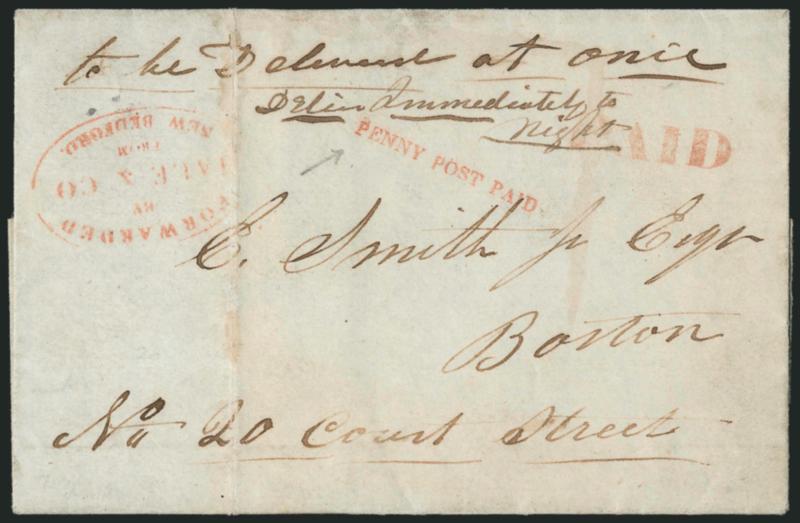 to be Delivered at once
Deliv Immediately to
Night
PAID
PENNY POST PAID
FORWARDED
BY
HALE & CO
FROM
NEW BEDFORD.
E. Smith Jr Esqr
Boston
No 20 Court Street